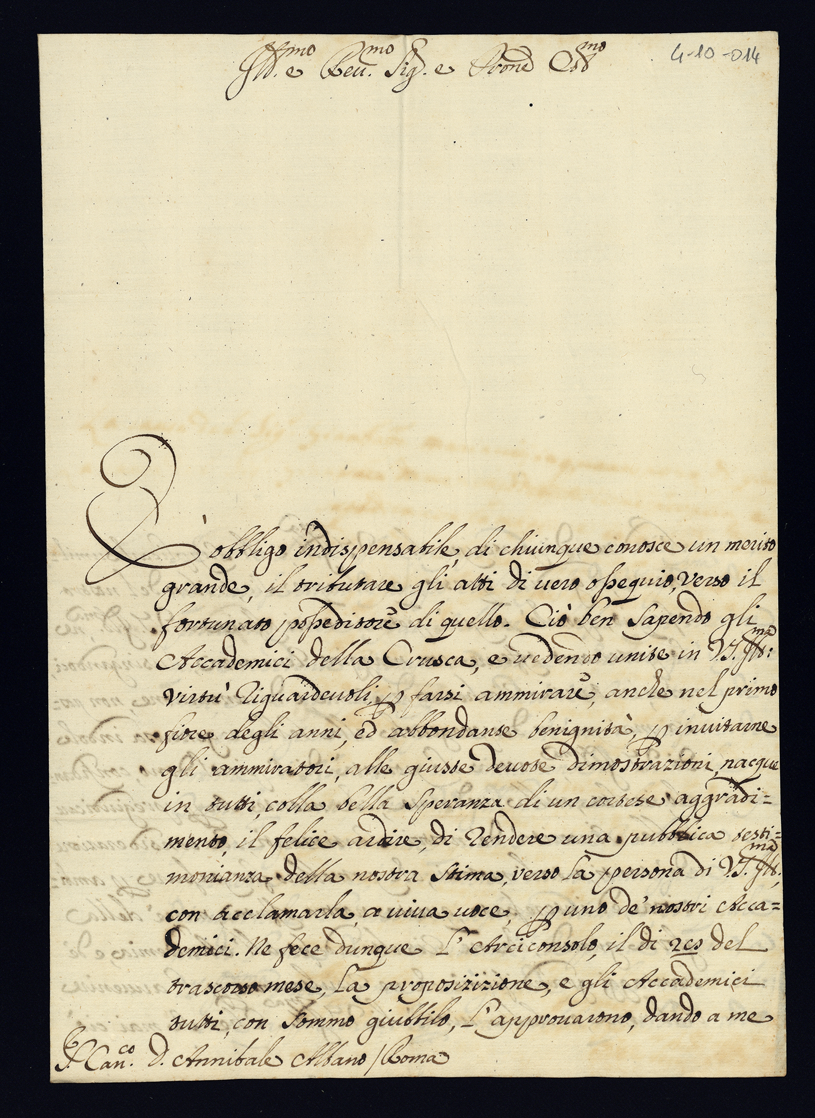 4-10-014
Ill.mo e Rev.mo Sig.e Pron Col.mo
È obbligo indispensabile, di chiunque conosce un merito
grande, il tributare gli atti di vero ossequio, verso il
fortunato posseditore di quello. Ciò ben sapendo gli
Accademici della Crusca, e vedendo unite in V.S. Ill.ma
virtù riguardevoli, p farsi ammirare, anche nel primo
fiore degli anni, ed abbondante benignità, p invitarne
gli ammiratori, alle giuste devote dimostrazioni, nacque
in tutti, colla bella speranza di un cortese aggradi=
mento, il felice ardire, di rendere una pubblica testi=
monianza della nostra stima, verso la persona di V.S. Ill.ma,
con acclamarla, a viva voce, p uno de' nostri Acca=
demici. Ne fece dunque L'Arciconsolo, il di del
trascorso mese, la proposizizione, e gli Accademici
tutti, con sommo giubbilo, L'approvarono, dando a me
Can.co D. Annibale Albano / Roma